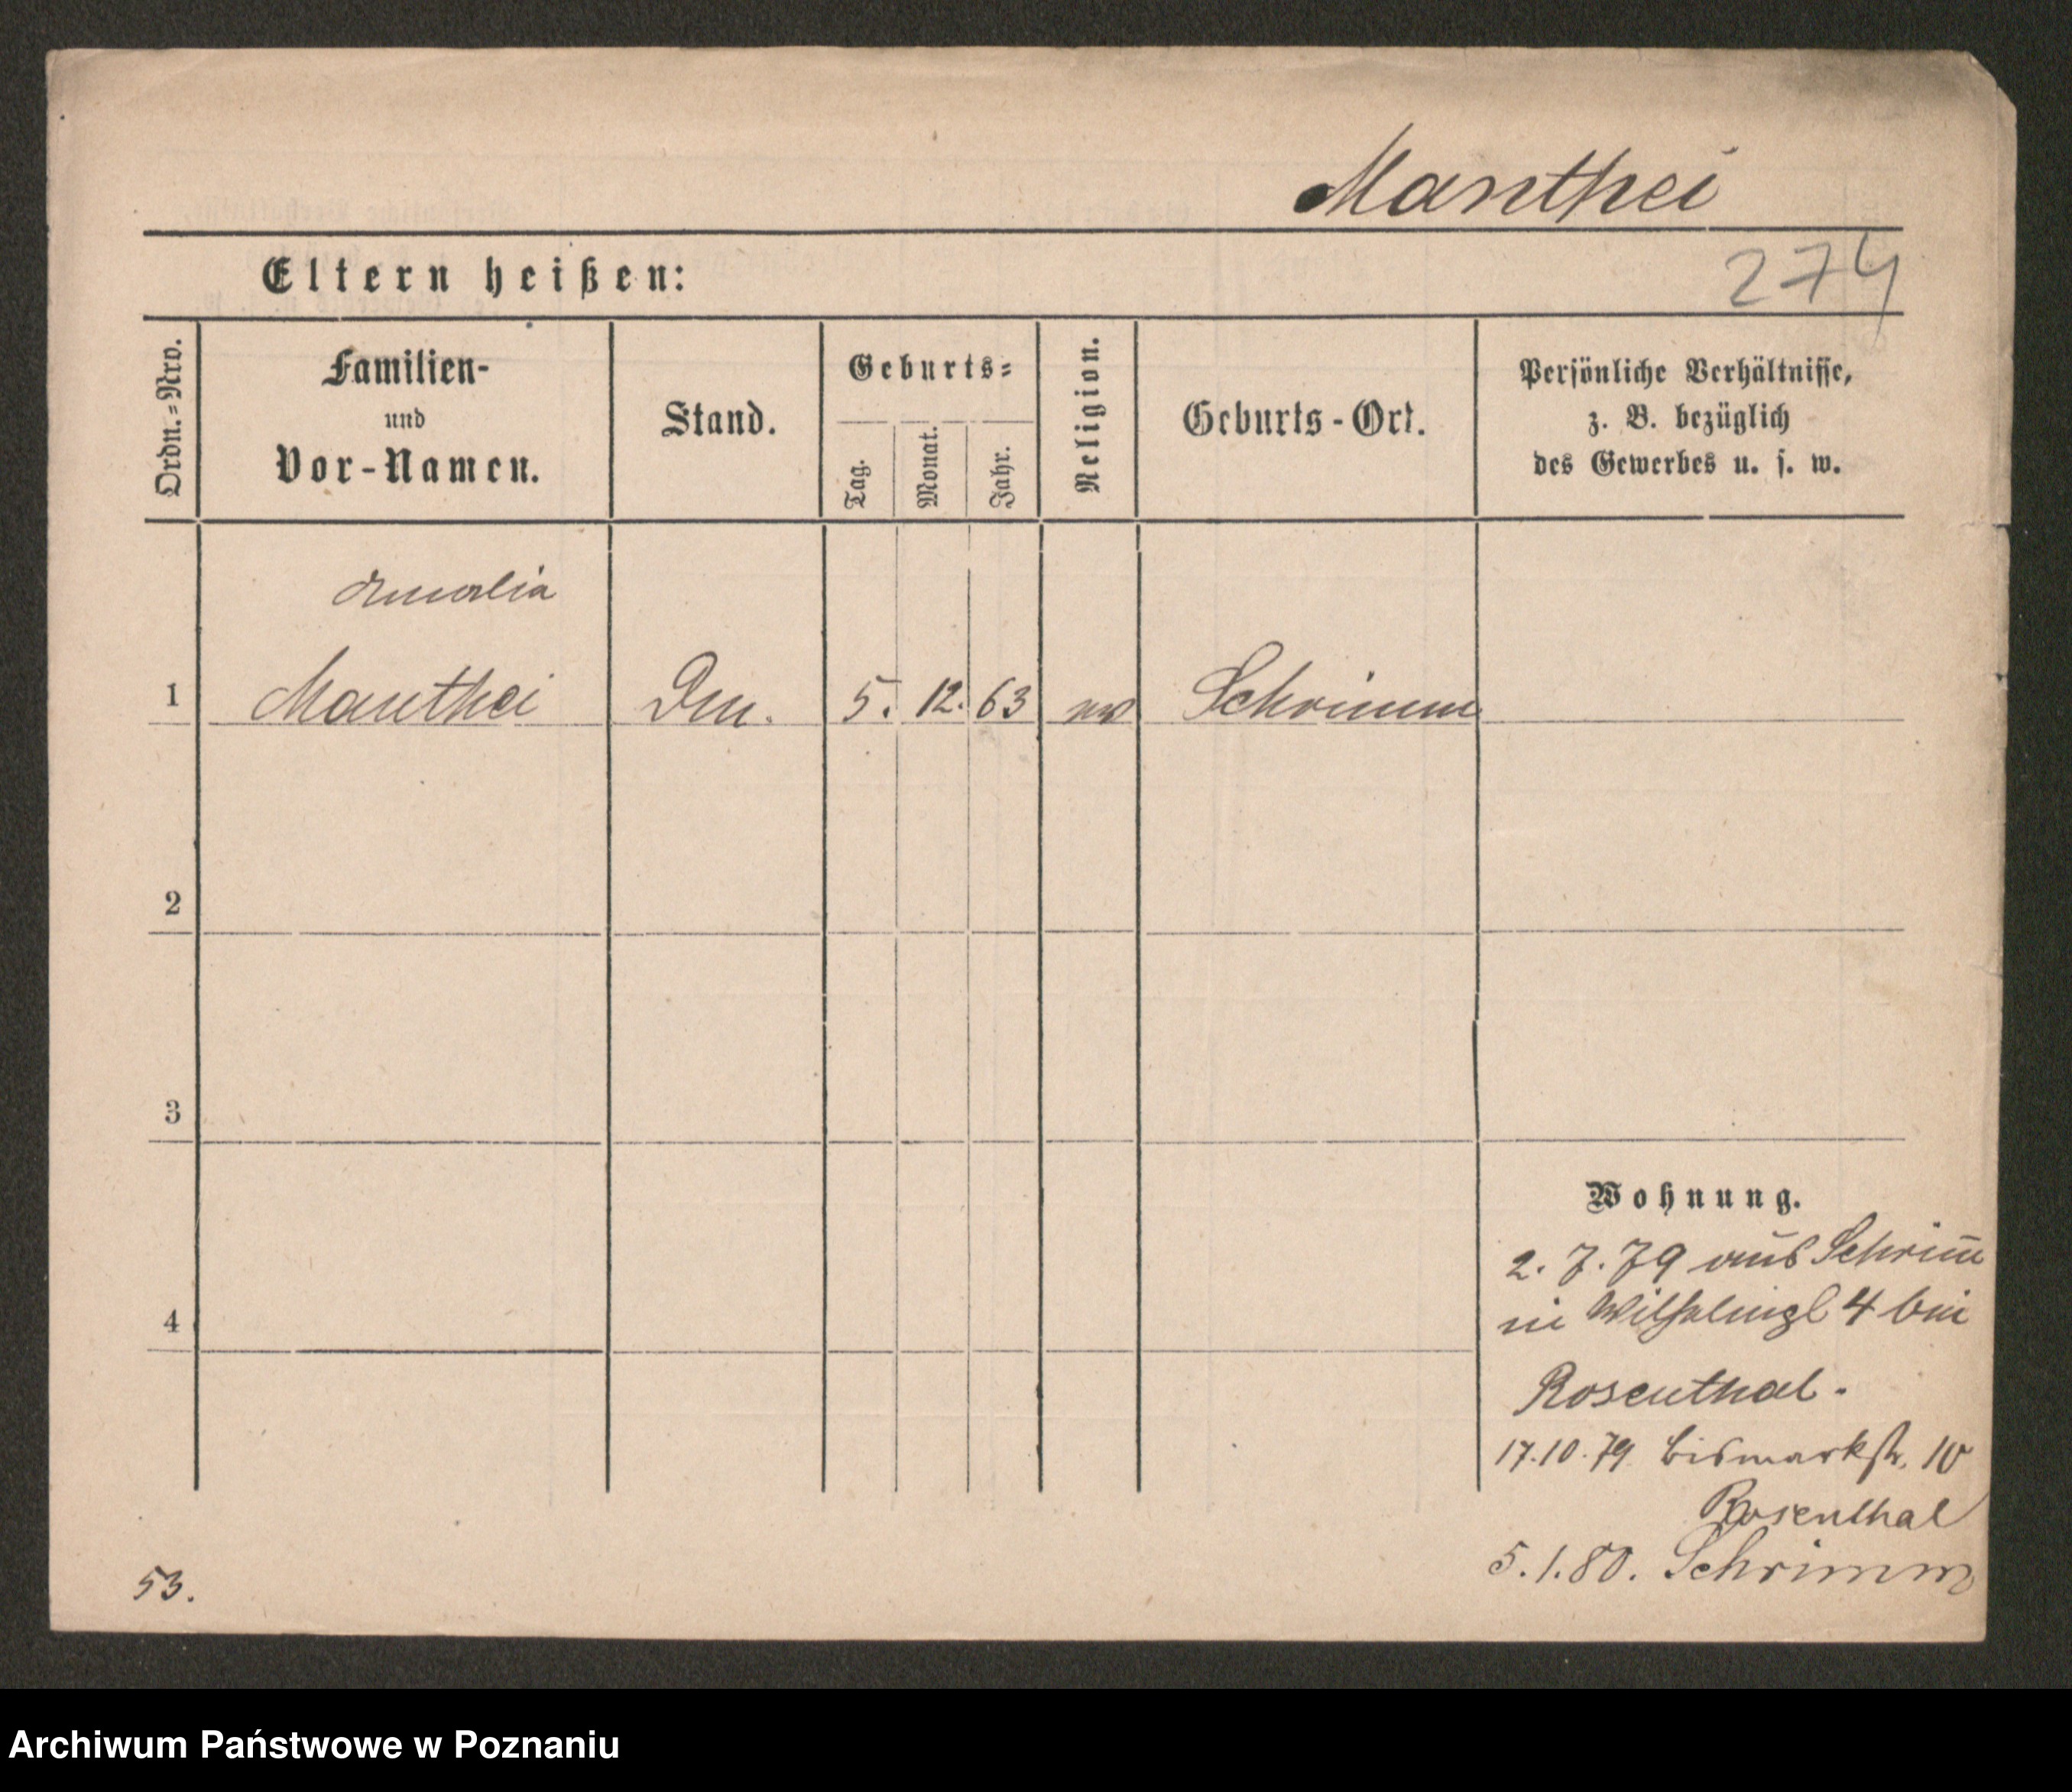 Manthei
274
Eltern heißen:
Ordn.=Nro.
Familien-
und
Vor-Namen.
Stand.
Geburts=
Tag.
Monat.
Jahr.
Religion.
Geburts-Ort.
Persönliche Verhältnisse,
z. B. bezüglich
des Gewerbes u. s. w.
Amalia
1 Manthei 5. 12. 63 Schrimm
2
3
4
Wohnung.
2. 7. 79 aus Schrim̄
in 4 bei
Rosenthal.
17.10.79 Bismarkstr. 10
Rosenthal
5.1.80. Schrimm
53.
Archiwum Państwowe w Poznaniu